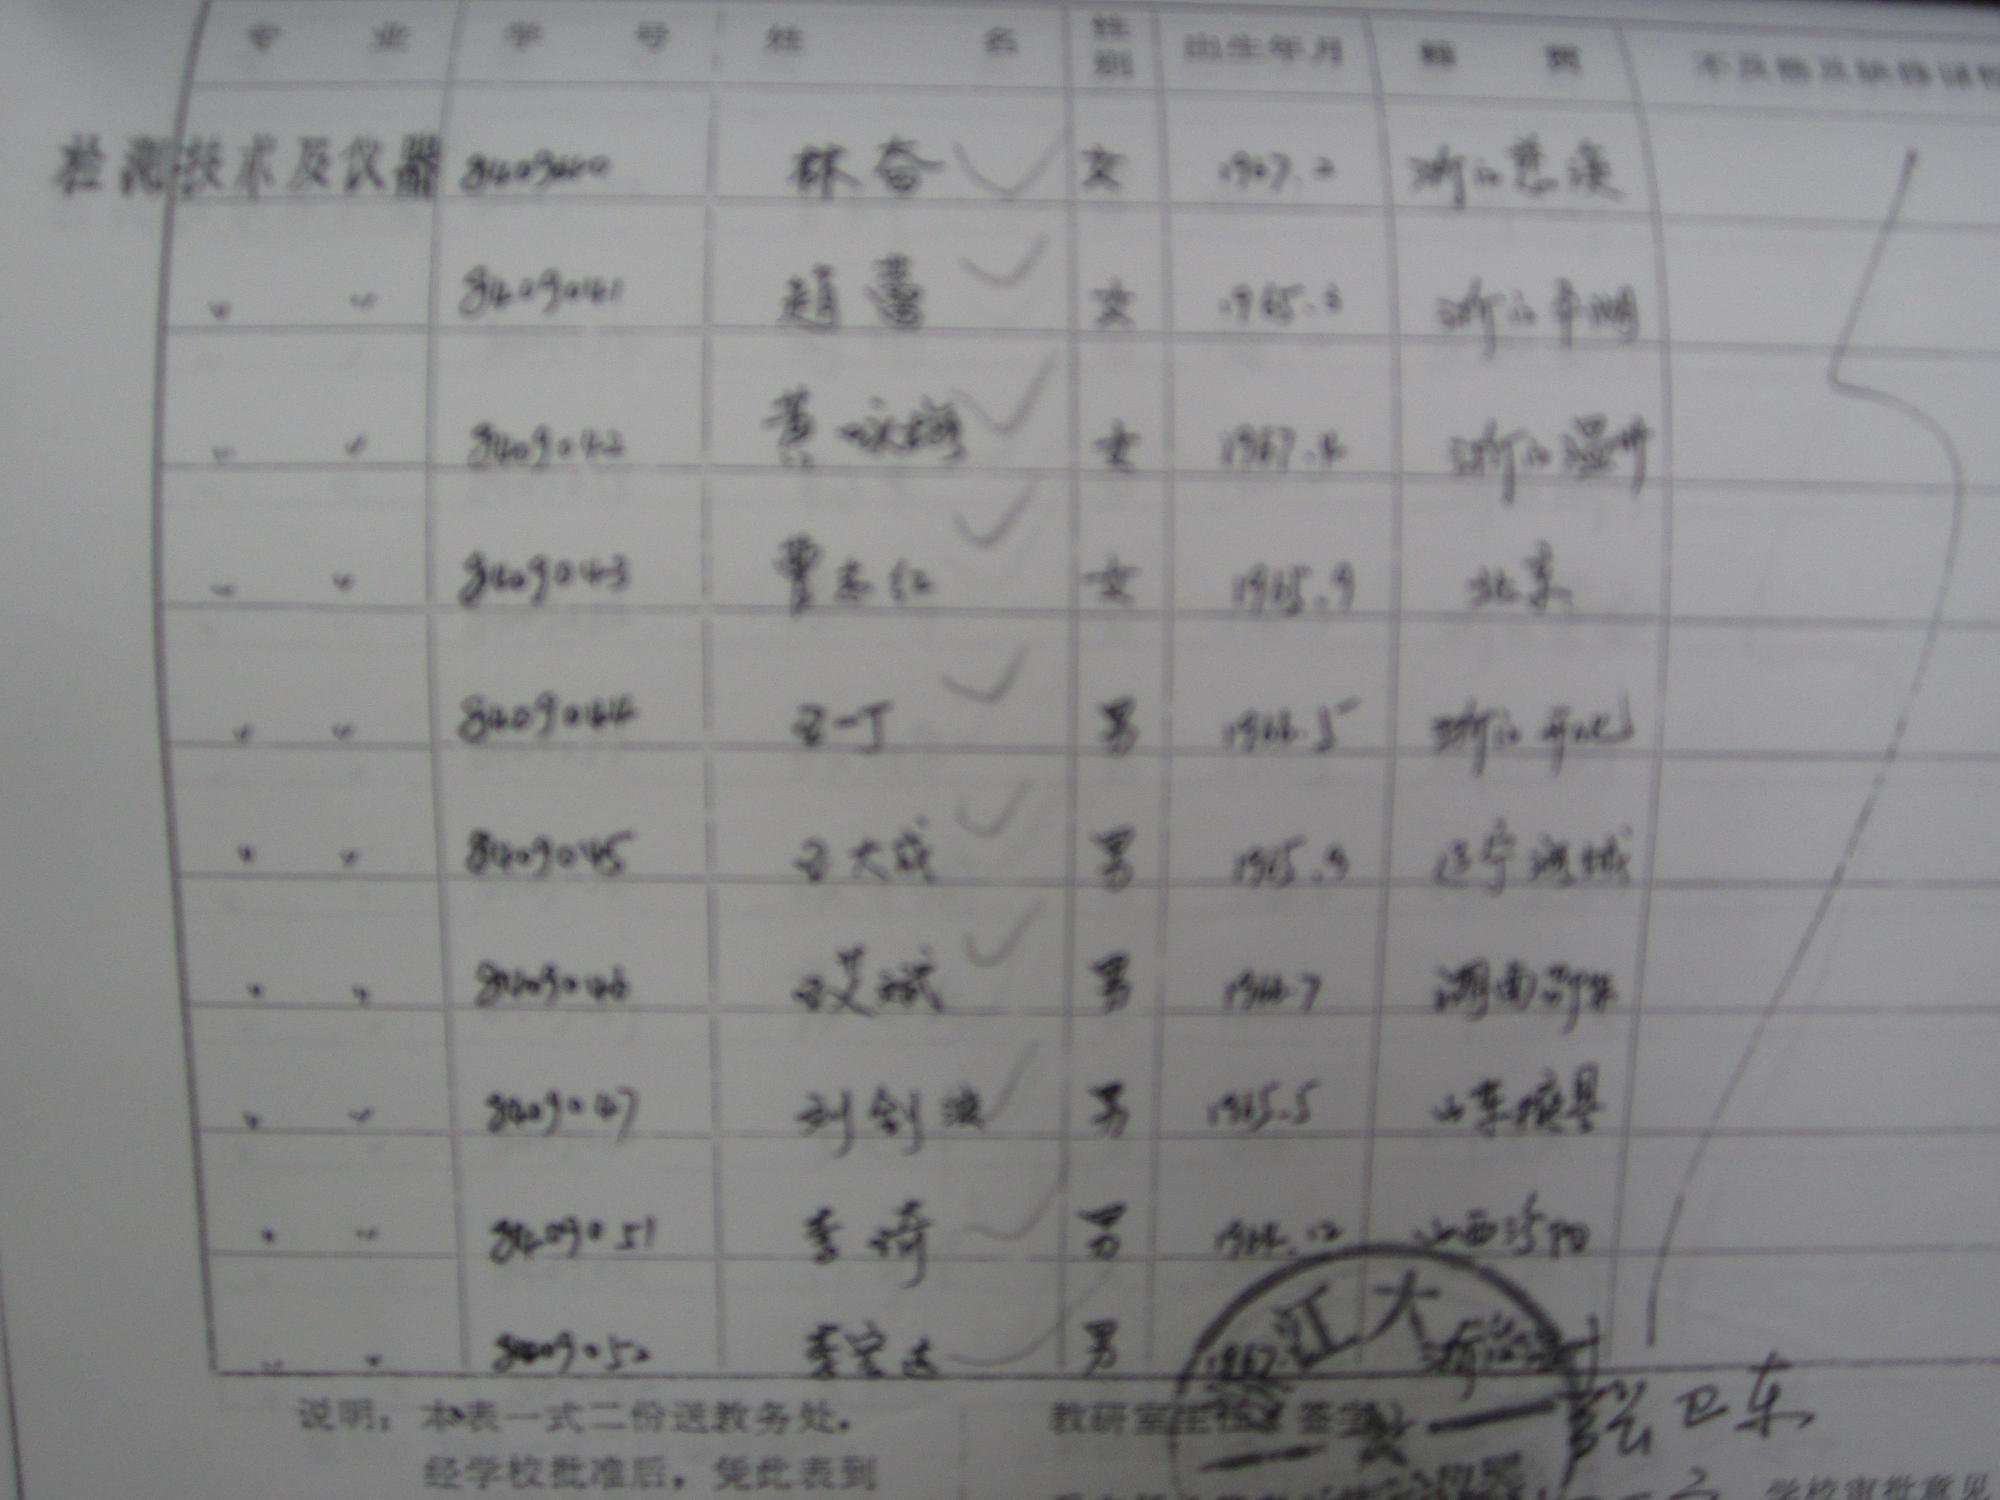 专 业 学 号 姓 名 性别 出生年月 籍 贯 不及格及缺修课程
检测技术及仪器 8409040 林奋 女 1967.2 浙江慈溪
〃 〃 8409041 趙蕾 女 1965.3 浙江平湖
〃 〃 8409042 黄咏梅 女 1967.4 浙江温州
〃 〃 8409043 曹志红 女 1965.9 北京
〃 〃 8409044 王一丁 男 1966.5 浙江开化
〃 〃 8409045 王大成 男 1965.9 辽宁海城
〃 〃 8409046 王艾斌 男 1966.7 湖南
〃 〃 8409047 刘剑波 男 1965.5 山东掖县
〃 〃 8409051 李琦 男 1964.12 山西汾阳
〃 〃 8409052 李宏达 男 1967. 浙江
说明：本表一式二份送教务处。 教研室主任（签字） 卫东
经学校批准后，凭此表到 学校审批意见
江大